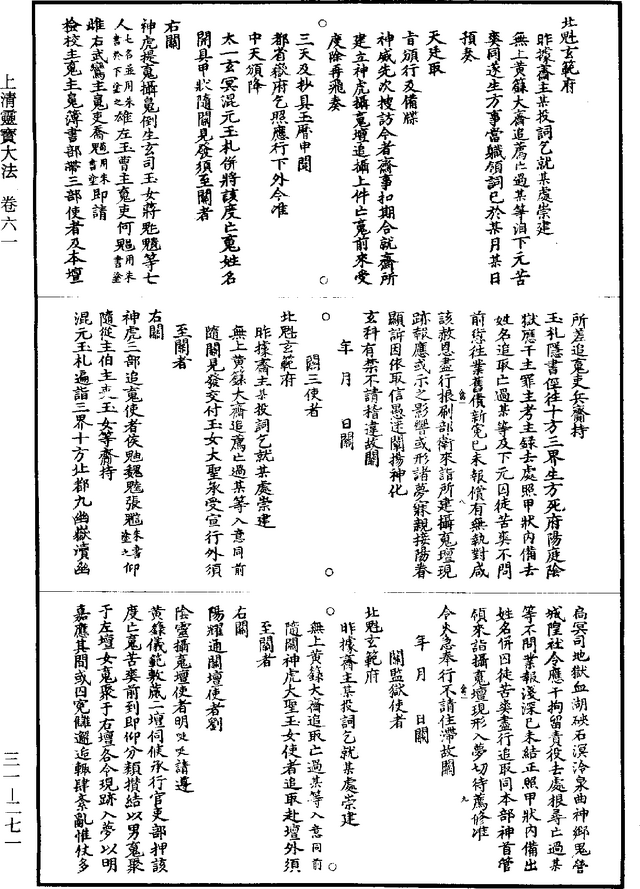 北魁玄範府
昨據齋主某投詞乞就某處崇建
無上黃籙大齋追薦亡過某等洎下元苦
爽同遂生方事當職領詞已於某月某日
預奏
天廷取
旨頒行及備牒
神威先次搜訪今者齋事扣期合就齋所
建立神虎攝䰟壇追攝上件亡䰟前來受
度除再飛奏
三天及抄具玉曆申聞
都省嶽府乞照應行下外今准
中天頒降
太一玄冥混元玉札併將該度亡䰟姓名
開具甲狀隨關見發須至關者
右關
神虎提䰟攝䰟倒生玄司玉女蔣等七
人七名並用朱書於下塗之雄左玉曹主䰟吏何用朱書塗
雌右武鸞主䰟吏喬用朱書塗即請
檢校主䰟主䰟簿書部帶三部使者及本壇
所差追䰟吏兵齎持
玉札隱書徑往十方三界生方死府陽庭陰
獄應干主罪主考主錄去處照甲狀內備去
姓名追取亡過某等及下元囚徒苦爽不問
前愆往業舊債新冤已未報償有無執對咸
該赦恩盡行根刷部衛來詣所建攝䰟壇現
跡報應或示之影響或形諸夢寐親接陽眷
顯訴因依取信愚迷闡揚神化
玄科有禁不請稽違故關
年 月 日關
關三使者
北魁玄範府
昨據齋主某投詞乞就某處崇建
無上黃籙大齋追薦亡過某等入意同前
隨關見發交付玉女大聖承受宣行外須
至關者
右關
神虎三部追䰟使者侯魏張朱書塗之仰
隨從主伯主史玉女等齎持
混元玉札遍詣三界十方北都九幽嶽瀆幽
局冥司地獄血湖硤石溟泠泉曲神鄉鬼營
城隍社令應干拘留責役去處根尋亡過某
等不問業報淺深已未結正照甲狀內備出
姓名併囚徒苦爽盡行追取同本部神首管
領來詣攝䰟壇現形入夢切待薦修准
令火急奉行不請住滯故關
年 月 日關
關監獄使者
北魁玄範府
昨據齋主某投詞乞就某處崇建
無上黃籙大齋追取亡過某等入意同前
隨關神虎大聖玉女使者追取赴壇外須
至關者
右關
陽耀通關壇使者劉
陰靈攝䰟壇使者明請遵
黃籙儀範敷嚴二壇伺候承行官吏部押該
度亡䰟苦爽前到即仰分類攢結以男䰟聚
于左壇女䰟聚于右壇各令現跡入夢以明
嘉應其間或因冤讎邂逅輒肆紊亂惟仗多
上清靈寶大法 卷六一
三一—二七一